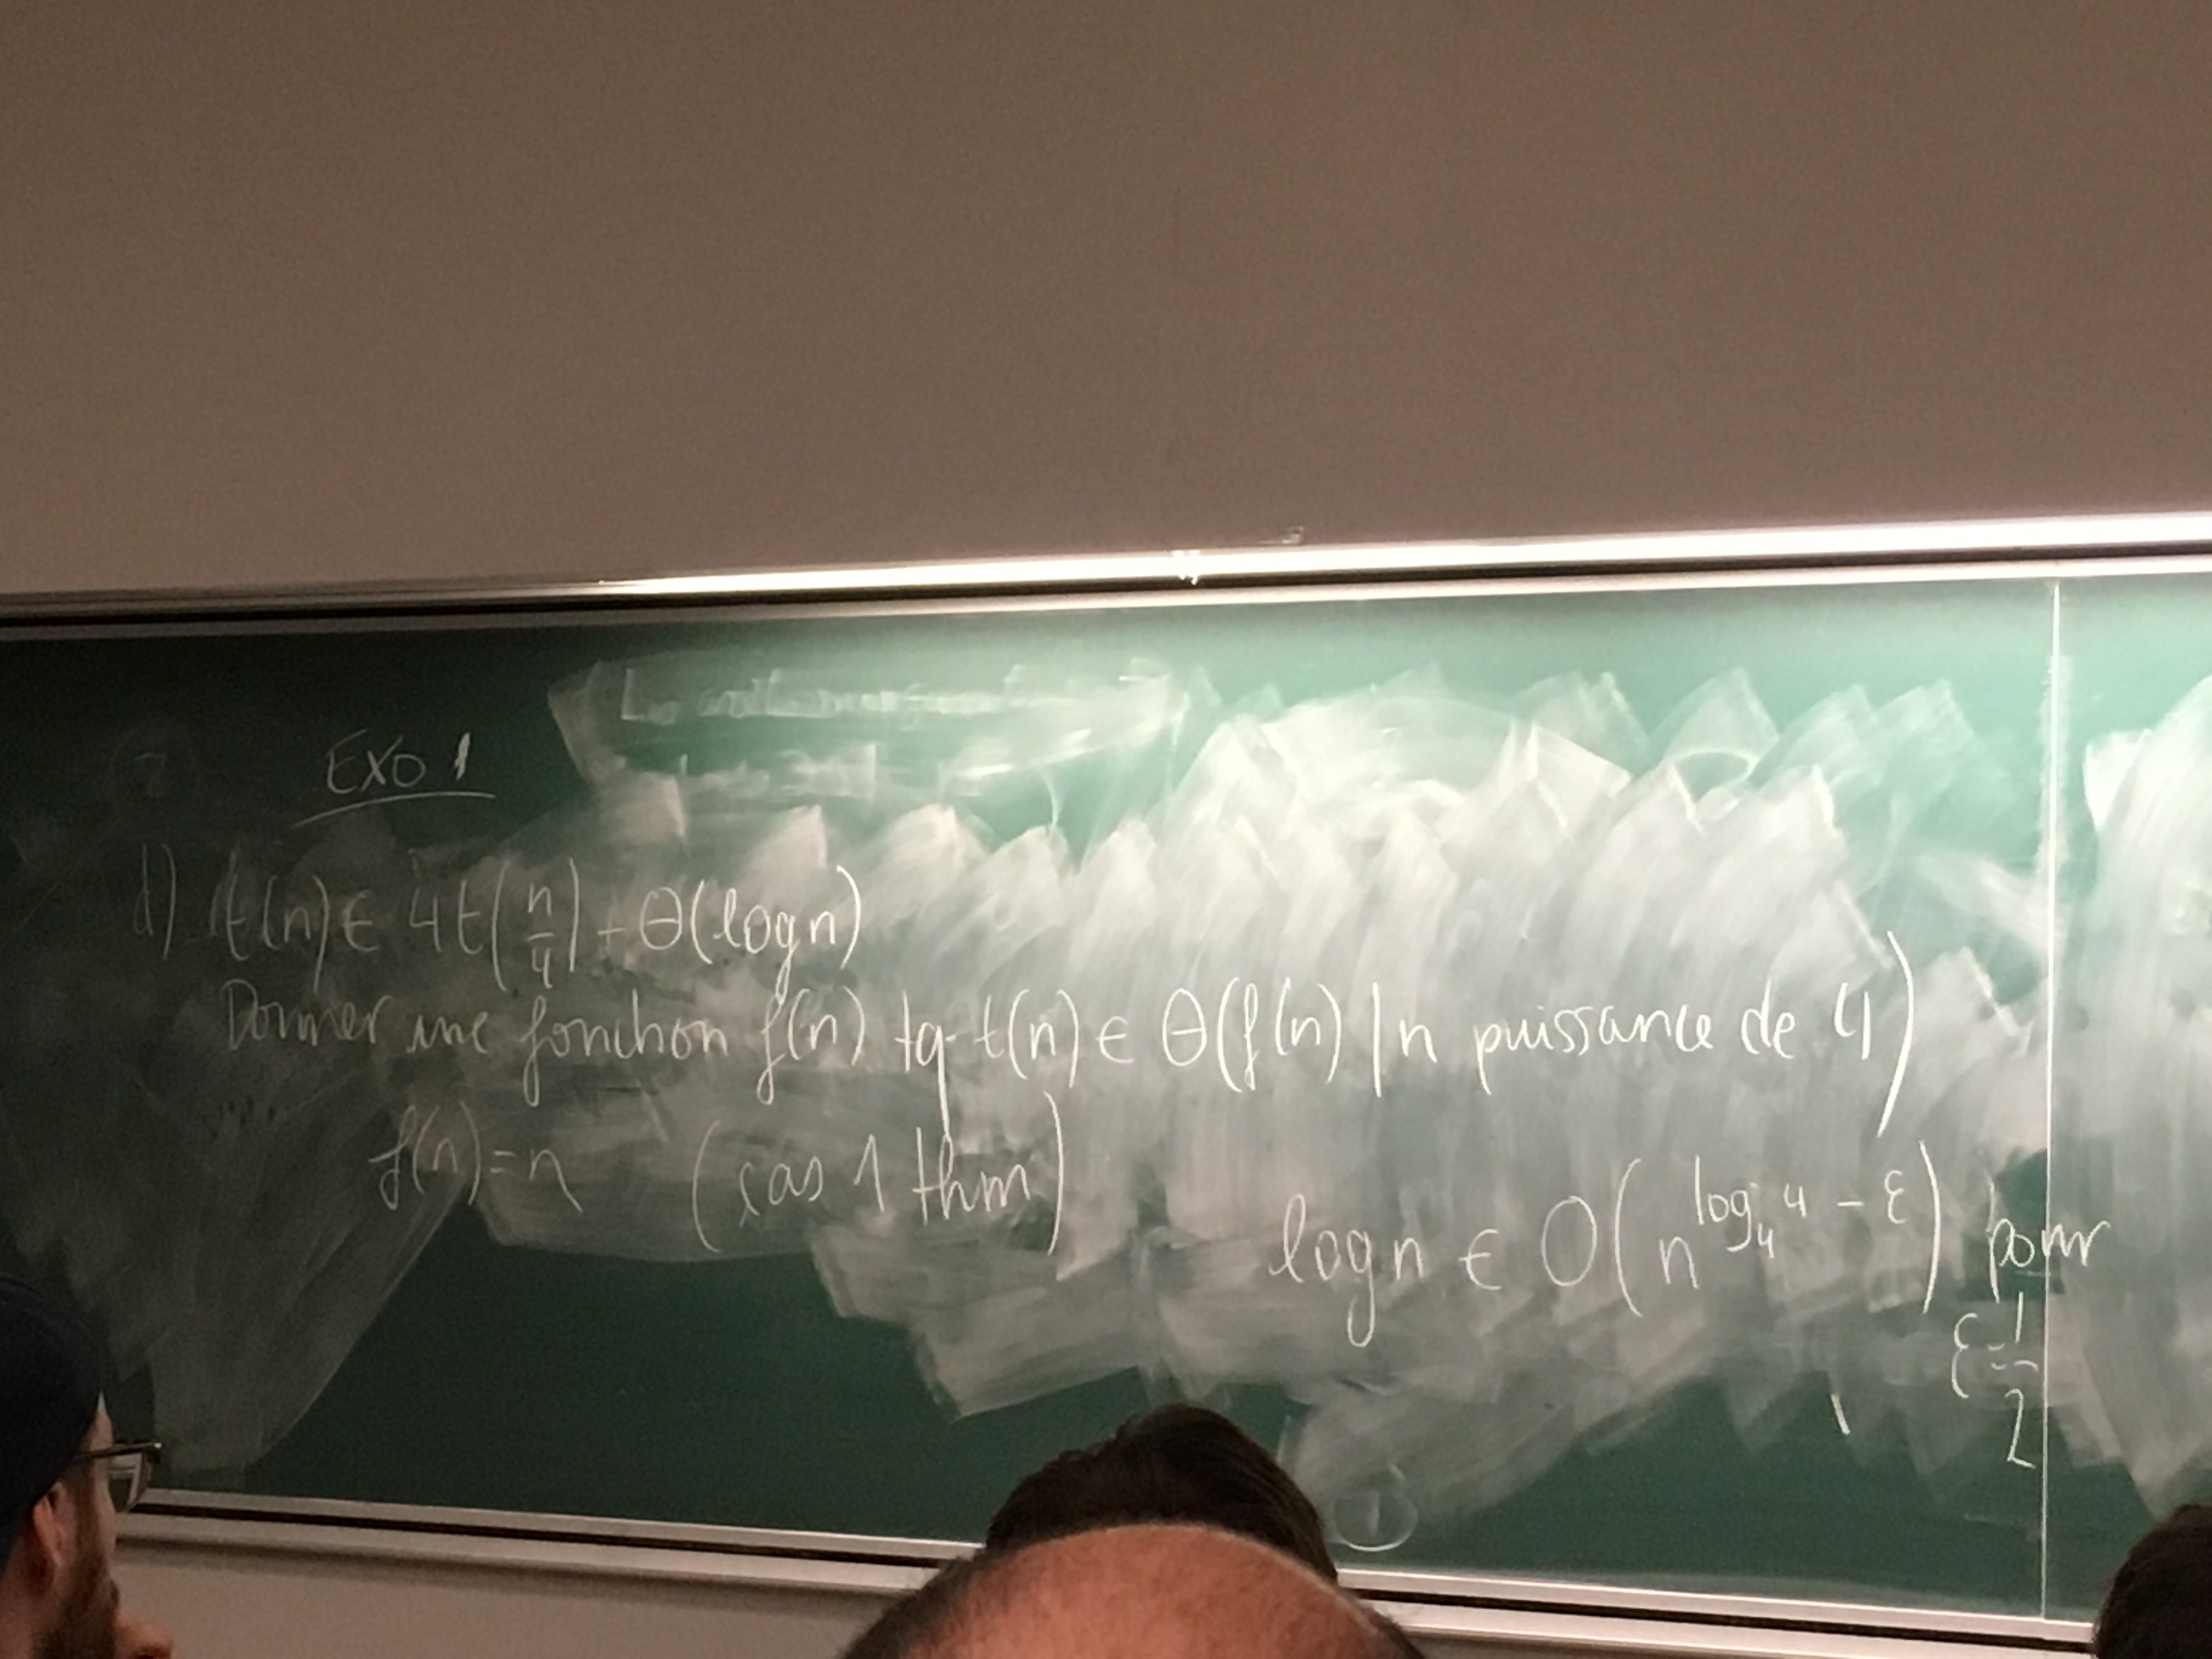 EXO 1
d) t(n) ∈ 4t(n/4) + Θ(log n)
Donner une fonction f(n) tq t(n) ∈ Θ(f(n) | n puissance de 4)
f(n) = n (cas 1 thm)
log n ∈ O(n^(log_4 4 - ε)) pour
ε = 1/2
1